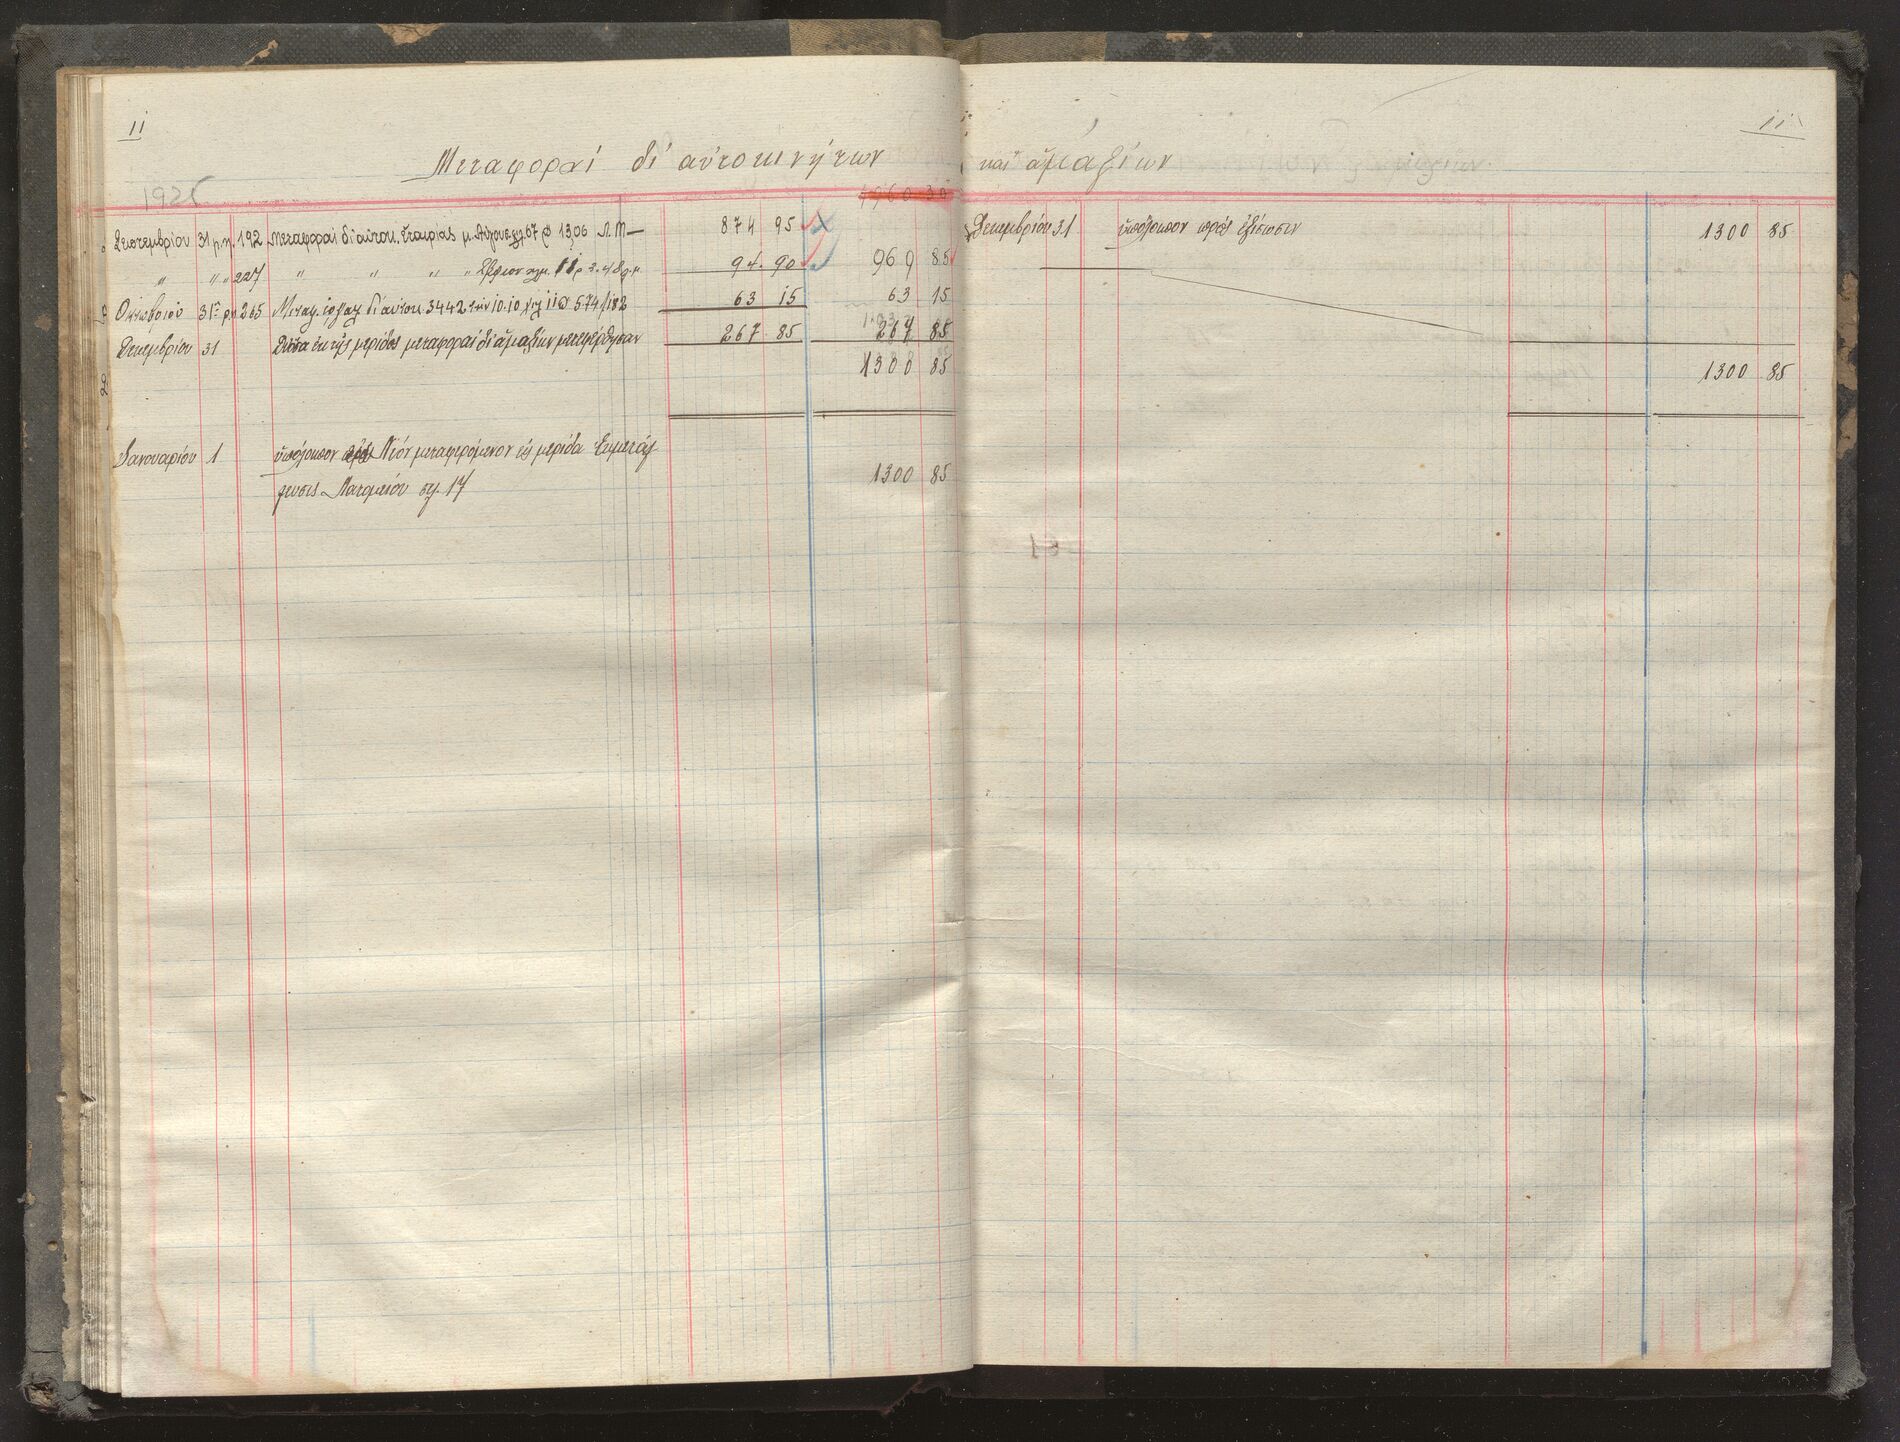 11
11
Μεταφοραί δι' αὐτοκινήτων καί ἁμαξίων
1925
1960 30
Σεπτεμβρίου 31 ρ.η. 192 Μεταφοραί δι' αὐτοκ. ἑταιρίας μ. 67 1306 Λ. Μ— 874 95
" " " 227 " " " " 11 94.90 969 85
Ὀκτωβρίου 31 ρ.η 265 Μεταφ. δι' αὐτοκ. 3442 τῶν 10.10 11 574/182 63 15 63 15
Δεκεμβρίου 31 ἐκ τῆς μερίδος μεταφοραί δι' ἁμαξίων μετεφέρθησαν 267 85 267 85
1300 85
Ἰανουαρίου 1 ὑπόλοιπον Νέον μεταφερόμενον εἰς μερίδα Ἐκμετάλ
λευσις Λατομείου σελ. 17 1300 85
Δεκεμβρίου 31 ὑπόλοιπον πρός ἐξίσωσιν 1300 85
1300 85